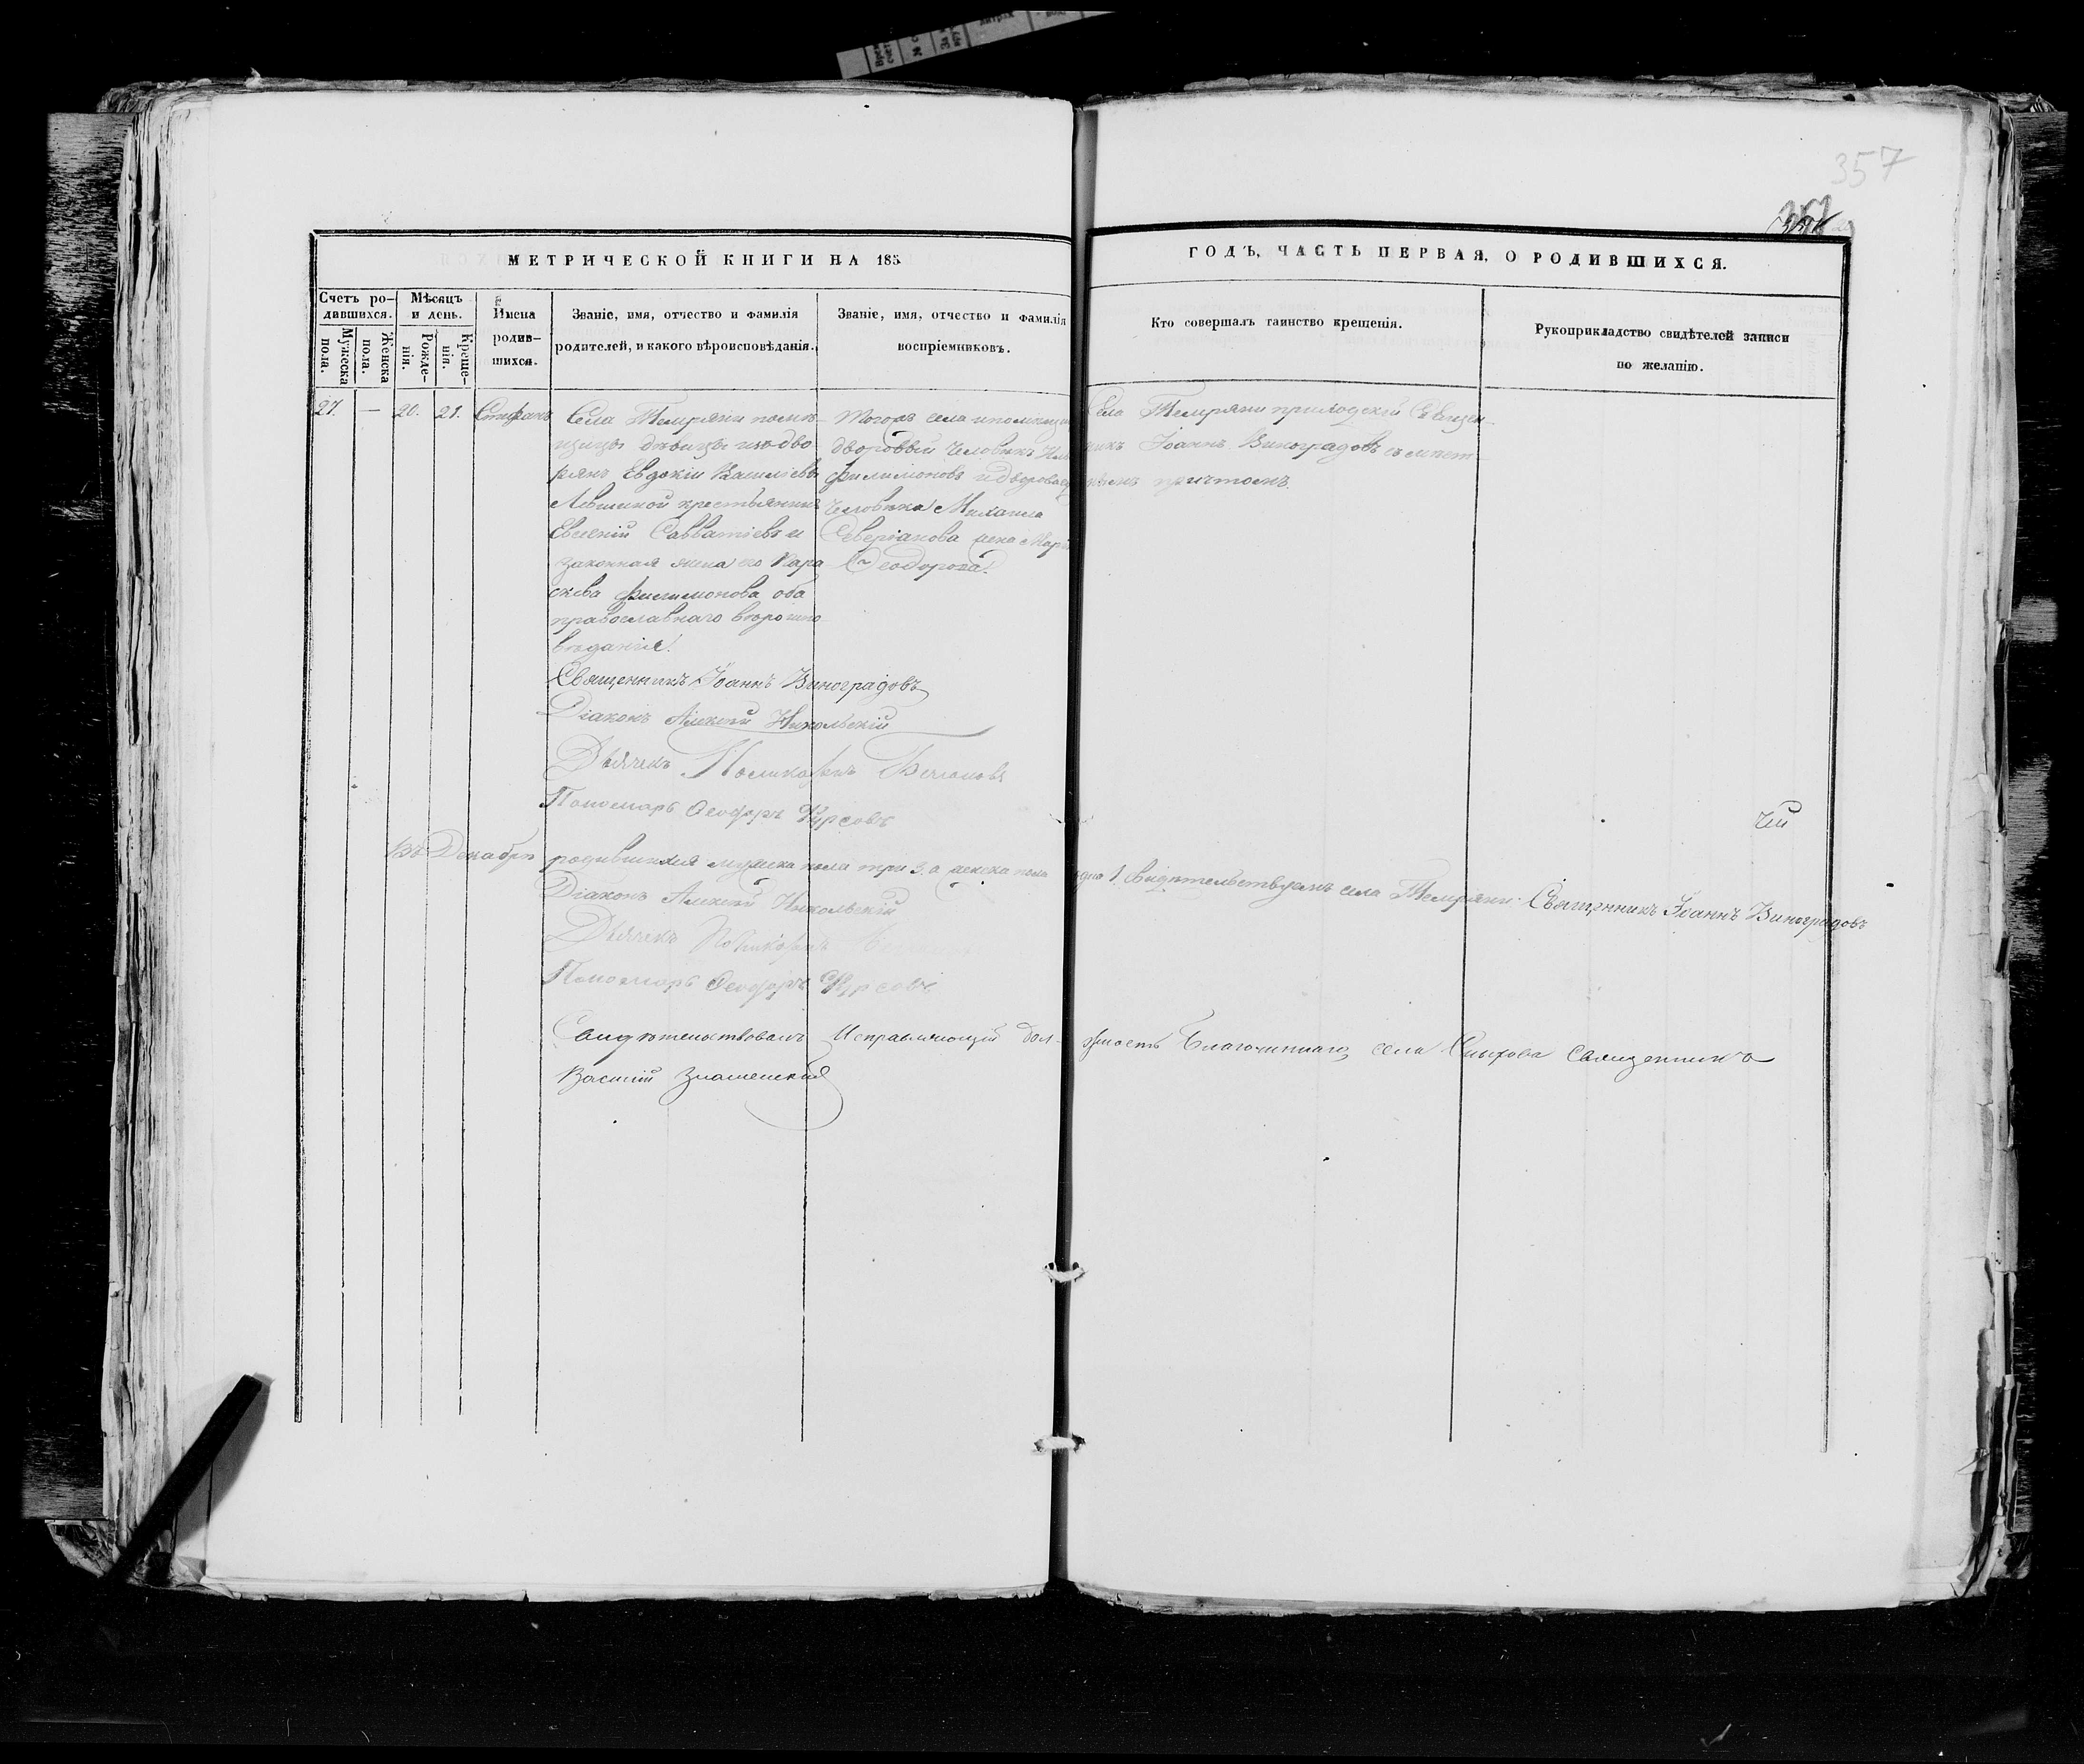 357
МЕТРИЧЕСКОЙ КНИГИ НА 185
ГОДЪ, ЧАСТЬ ПЕРВАЯ, О РОДИВШИХСЯ.
Счетъ ро-
дившихся.
Мужеска
пола.
Женска
пола.
Мѣсяцъ
и день.
Рожде-
нія.
Креще-
нія.
Имена
родив-
шихся.
Званіе, имя, отчество и фамилія
родителей, и какого вѣроисповѣданія.
Званіе, имя, отчество и фамилія
воспріемниковъ.
Кто совершалъ таинство крещенія.
Рукоприкладство свидѣтелей записи
по желанію.
27. — 20. 21. Стефанъ
Села Темряни помѣ-
щицы дѣвицы изъ дво-
рянъ Евдокіи Васильевы
крестьянинъ
Евсевій Савватіевъ и
законная жена его Пара-
скева Филимонова оба
православнаго вѣроиспо-
вѣданія.
Тогожъ села и помѣщи
дворовый человѣкъ
Филимоновъ и дворова
человѣка Михаила
Северіанова жена Марія
Ѳеодорова.
Села Темряни приходскій Священ-
никъ Іоаннъ Виноградовъ съ
причтомъ
Священникъ Іоаннъ Виноградовъ
Діаконъ Алексій Никольскій
Дьячекъ Поликарпъ
Пономарь Ѳеодоръ Фурсовъ
Въ Декабрѣ родившихся мужска пола три 3, а женска пола одно 1 свидѣтельствуемъ села Темряни Священникъ Іоаннъ Виноградовъ
Діаконъ Алексій Никольскій
Дьячекъ Поликарпъ
Пономарь Ѳеодоръ Фурсовъ
Свидѣтельствовалъ Исправляющій должность Благочиннаго, села Священникъ
Василій Знаменскій